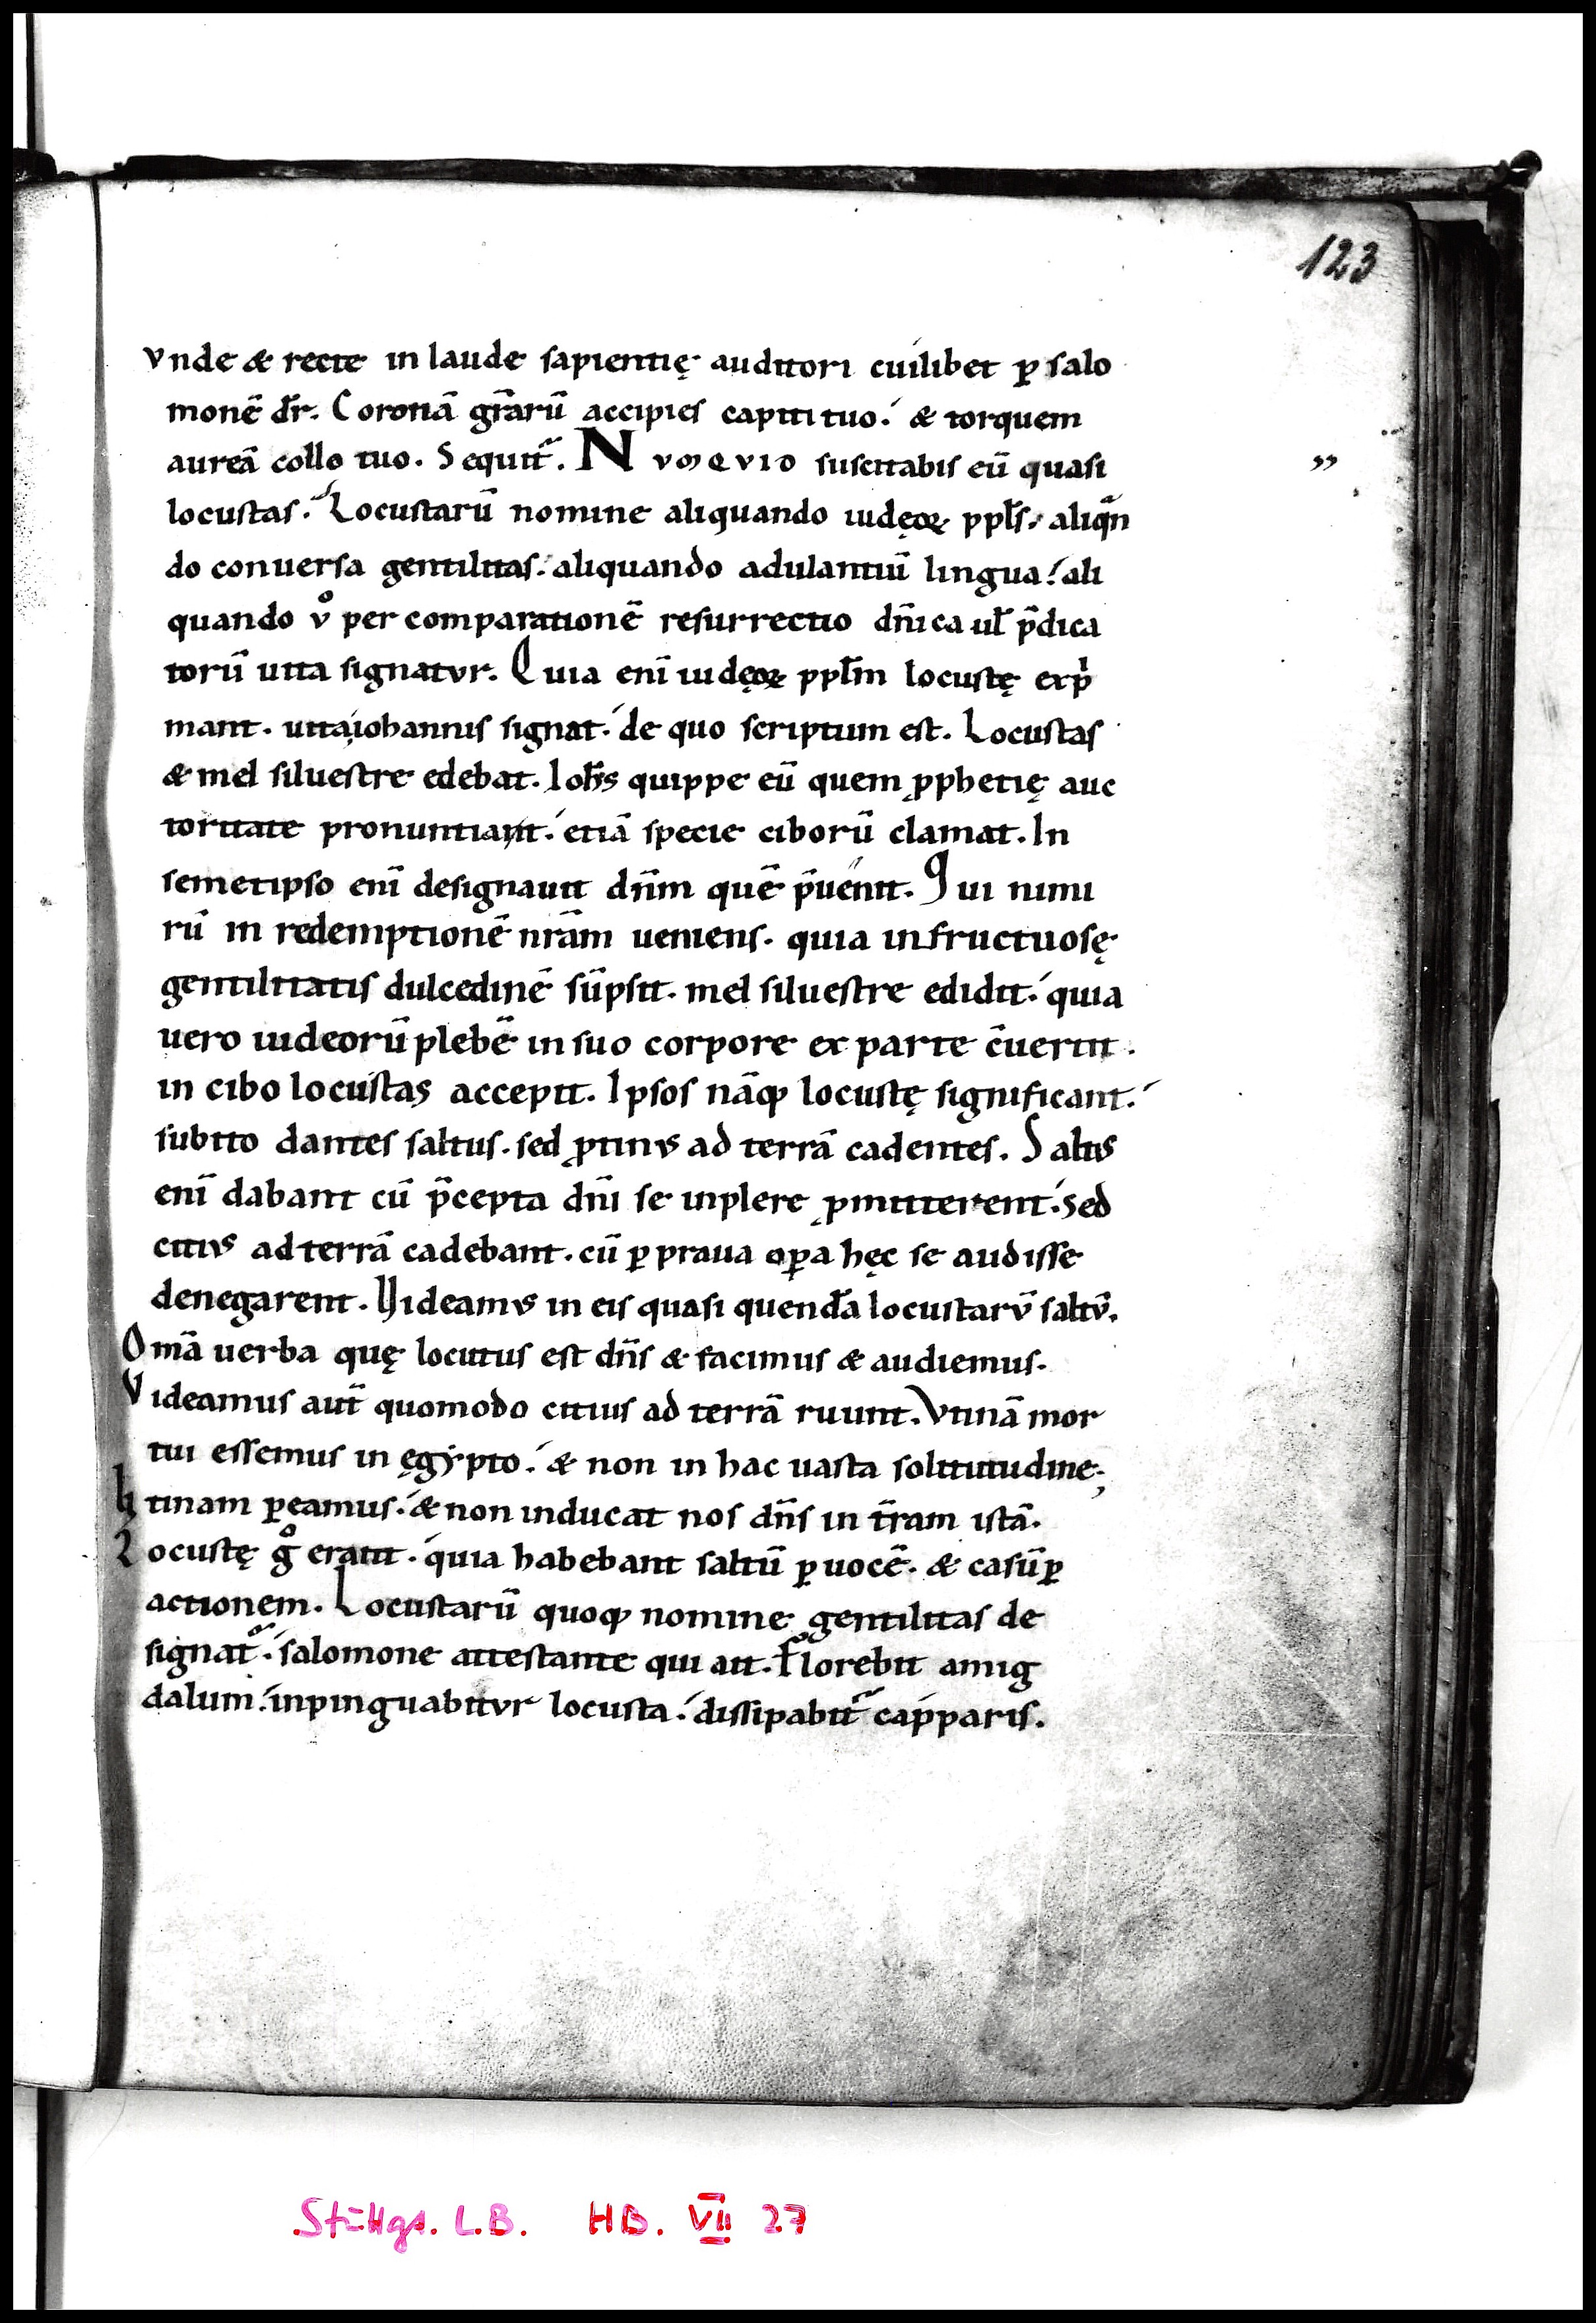 123
vnde & recte in laude sapientię auditori cuilibet ꝑ salo
monē dr̄. Coronā gr̄arū accipies capiti tuo. & torquem
aureā collo tuo. Sequit̄. NVMQVID suscitabis eū quasi
locustas. Locustarū nomine aliquando iudęoꝝ ppl̄s. aliqᷓn
do conuersa gentilitas. aliquando adulantiū lingua. ali
quando v̊ per comparationē resurrectio dn̄ica ul̄ p̄dica
torū uita signatvr. Quia enī iudęoꝝ ppl̄m locustę exp̍
mant. uita iohannis signat. de quo scriptum est. Locustas
& mel siluestre edebat. Ioh̄s quippe eū quem ꝓphetię auc
toritate pronuntiant. etiā specie ciborū clamat. In
semetipso enī designauit dn̄m quē p̄uenit. Qui nimi
rū in redemptionē nr̄am ueniens. quia infructuosę
gentilitatis dulcedinē sūpsit. mel siluestre edidit. quia
uero iudeorū plebē in suo corpore ex parte c̄uertit.
in cibo locustas accepit. Ipsos nāqꝫ locustę significant.
subito dantes saltus. sed ꝓtinvs ad terrā cadentes. Saltvs
enī dabant cū p̄cepta dn̄i se inplere ꝓmitterent. Sed
citivs ad terrā cadebant. cū ꝑ praua oꝑa hęc se audisse
denegarent. Videamvs in eis quasi quendā locustarv̄ saltv̄.
Om̄a uerba quę locutus est dn̄s & facimus & audiemus.
Videamus aut̄ quomodo citius ad terrā ruunt. Vtinā mor
tui essemus in ęgẏpto. & non in hac uasta solitutudine;
Vtinam ꝑeamus. & non inducat nos dn̄s in t̄ram istā.
Locustę g̊ erant. quia habebant saltū ꝑ uocē. & casū ꝑ
actionem. Locustarū quoqꝫ nomine gentilitas de
signat̄. salomone attestante qui ait. Florebit amig
dalum. inpinguabitvr locusta. dissipabit̄ capparis.
Stuttg. L.B. HB. VII 27